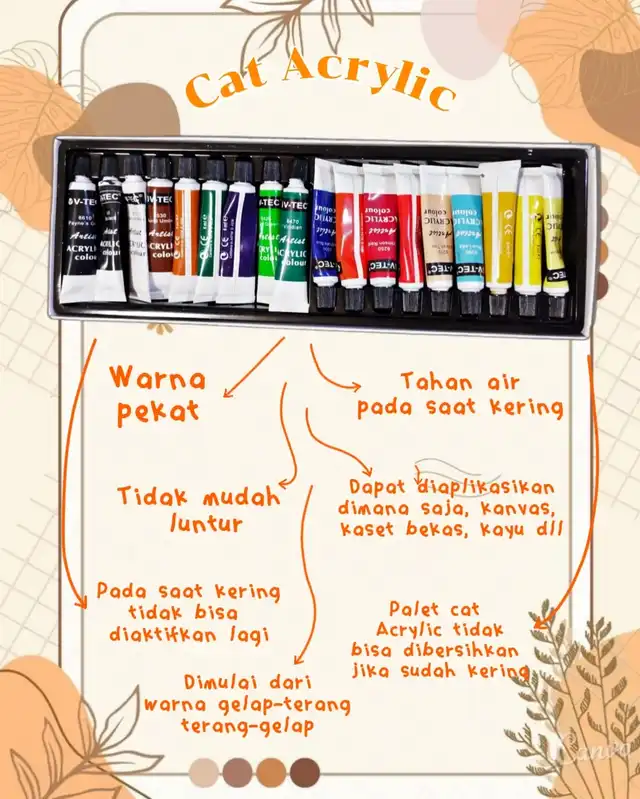 Cat Acrylic
V-TEC
Artist
ACRYLIC
colour
Warna
pekat
Tahan air
pada saat kering
Tidak mudah
luntur
Dapat diaplikasikan
dimana saja, kanvas,
kaset bekas, kayu dll
Pada saat kering
tidak bisa
diaktifkan lagi
Palet cat
Acrylic tidak
bisa dibersihkan
jika sudah kering
Dimulai dari
warna gelap-terang
terang-gelap
Canva